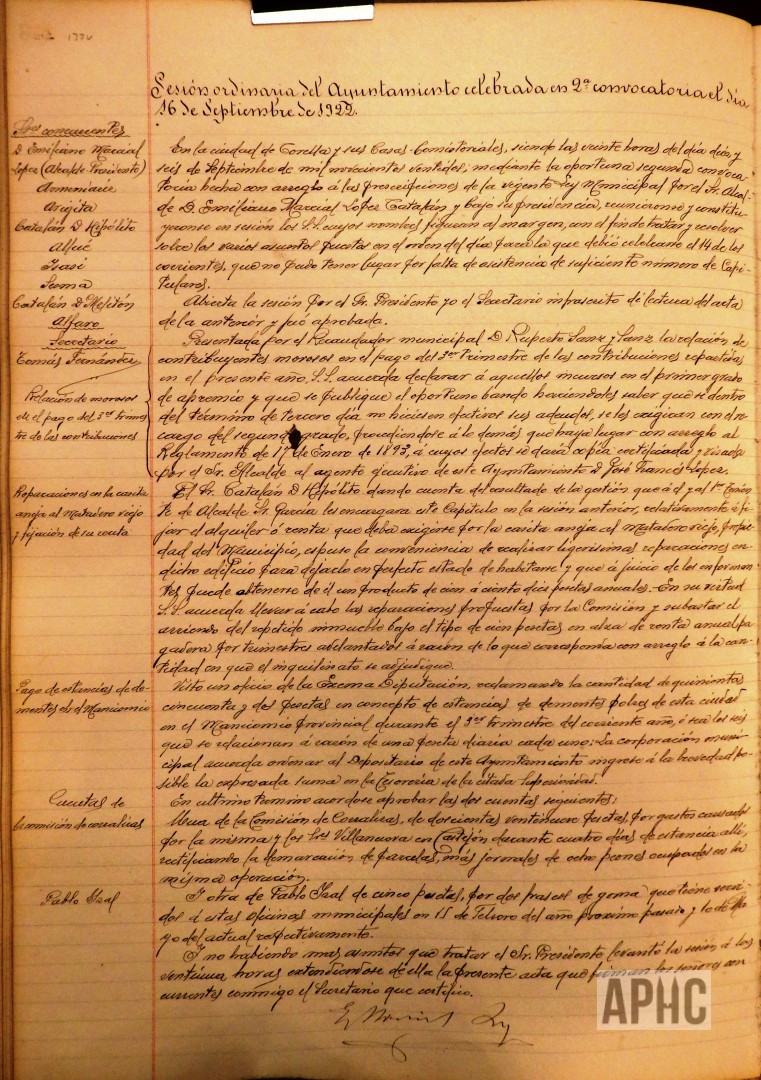 Sesión ordinaria del Ayuntamiento celebrada en 2ª convocatoria el día
16 de Septiembre de 1922.
Sres concurrentes
D Emiliano Marcial
Lopez (Alcalde Presidente)
Armendariz
Argita
Catalán D Hipólito
Allué
Isasi
Sesma
Catalán D Melitón
Alfaro
Secretario
Tomás Fernández
En la ciudad de Corella y sus Casas-Consistoriales, siendo las veinte horas del día diez y
seis de Septiembre de mil novecientos ventidos, mediante la oportuna segunda convoca-
toria hecha con arreglo á las prescripciones de la vegente Ley Municipal por el Sr. Alcal-
de D. Emiliano Marcial Lopez Catalán y bajo su presidencia, reunieronse y constitu-
yeronse en sesión los S.S. cuyos nombres figuran al margen, con el fin de tratar y resolver
sobre los varios asuntos puestos en el orden del día para la que debió celebrarse el 14 de los
corrientes, que no pudo tener lugar por falta de asistencia de suficiente número de Capi-
tulares.
Abierta la sesión por el Sr. Presidente yo el Secretario infrascrito dí lectura del acta
de la anterior y fué aprobada.
Relación de morosos
en el pago del 3er trimes
tre de las contribuciones
Presentada por el Recaudador municipal D Ruperto Sanz y Sanz la relación de
contribuyentes morosos en el pago del 3er Trimestre de las contribuciones repartidas
en el presente año, S.S. acuerda declarar á aquellos incursos en el primer grado
de apremio y que se publique el oportuno bando haciendoles saber que si dentro
del término de tercero día no hiciesen efectivos sus adeudos, se les exigirán con el re-
cargo del segundo grado, procediendose á lo demás que haya lugar con arreglo al
Reglamento de 17 de Enero de 1893, á cuyos efectos se dará copia certificada y visada
por el Sr. Alcalde al agente ejecutivo de este Ayuntamiento D José Francés Lopez.
Reparaciones en la casita
aneja al Matadero viejo
y fijación de su renta
El Sr. Catalán D Hipólito dando cuenta del resultado de la gestión que á él y al 1er Tenien
te de Alcalde Sr. Garcia les encargara este Capítulo en la sesión anterior, relativamente á fi-
jar el alquiler ó renta que deba exigirse por la casita aneja al Matadero viejo, propie
dad del Municipio, espuso la conveniencia de realizar ligerisimas reparaciones en
dicho edificio para dejarlo en perfecto estado de habitarse y que á juicio de los informan
tes, puede obtenerse de él un producto de cien á ciento diez pesetas anuales.- En su virtud
S.S. acuerda llevar á cabo las reparaciones propuestas por la Comisión y subastar el
arriendo del repetido inmueble bajo el tipo de cien pesetas en alza de renta anual pa
gadera por trimestres adelantados á razón de lo que corresponda con arreglo á la can-
tidad en que el inquilinato se adjudique.
Pago de estancias de de-
mentes en el Manicomio
Visto un oficio de la Excma Diputación, reclamando la cantidad de quinientas
cincuenta y dos pesetas en concepto de estancias de dementes pobres de esta ciudad
en el Manicomio Provincial durante el 3er trimestre del corriente año, ó sea los seis
que se relacionan á razón de una peseta diaria cada uno: La corporación muni-
cipal acuerda ordenar al Depositario de este Ayuntamiento ingrese á la brevedad po-
sible la expresada suma en la Tesorería de la citada Superioridad.
Cuentas de
la comisión de corralizas
En ultimo termino acordose aprobar las dos cuentas seguientes:
Una de la Comisión de Corralizas, de doscientas ventinueve pesetas, por gastos causados
por la misma y los Sres Villanueva en Castejón durante cuatro días de estancia allí,
rectificando la demarcación de parcelas, más jornales de ocho peones ocupados en la
misma operación.
Pablo Isal
Y otra de Pablo Isal de cinco pesetas, por dos frascos de goma que tiene servi-
dos á estas oficinas municipales en 15 de Febrero del año proximo pasado y 10 de Ma-
yo del actual respectivamente.
Y no habiendo mas asuntos que tratar el Sr. Presidente levantó la sesión á las
ventiuna horas extendiendose de ella la presente acta que firman los señores con
currentes conmigo el Secretario que certifico.
APHC